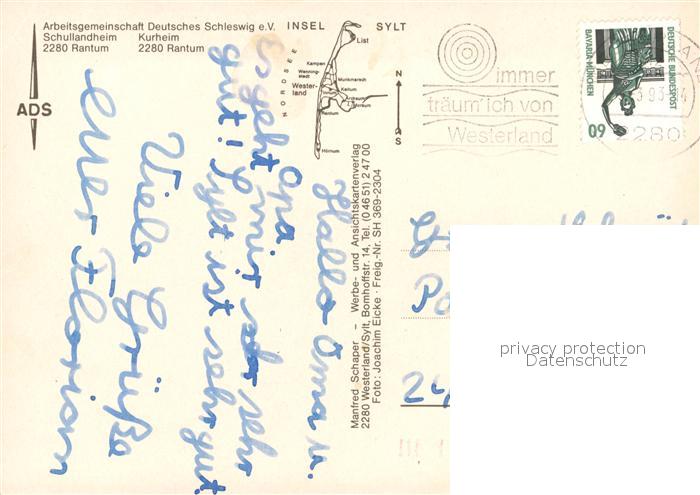 Arbeitsgemeinschaft Deutsches Schleswig e.V.
Schullandheim Kurheim
2280 Rantum 2280 Rantum
ADS
INSEL SYLT
NORDSEE
List
Kampen
Wenning-
stedt
Wester-
land
Munkmarsch
Keitum
Morsum
Rantum
Hörnum
N
S
immer
träum'ich von
Westerland
2280
DEUTSCHE BUNDESPOST
BAVARIA MÜNCHEN
60
Hallo Oma u.
Opa
Es geht mir sehr
gut! Sylt ist sehr gut
Viele Grüße
euer Florian
Manfred Schaper – Werbe- und Ansichtskartenverlag
2280 Westerland/Sylt, Bomhoffstr. 14, Tel. (0 46 51) 2 47 00
Foto: Joachim Eicke · Freig.-Nr. SH 369-2304
privacy protection
Datenschutz